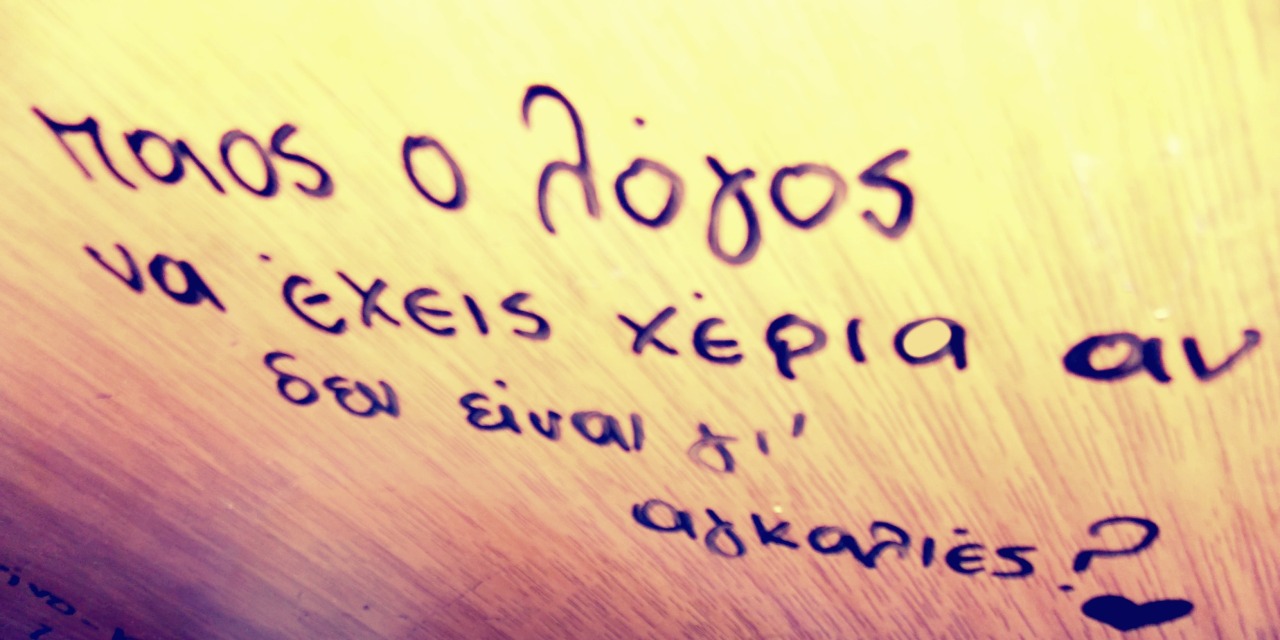 ποιος ο λόγος
να έχεις χέρια αν
δεν είναι γι'
αγκαλιές?